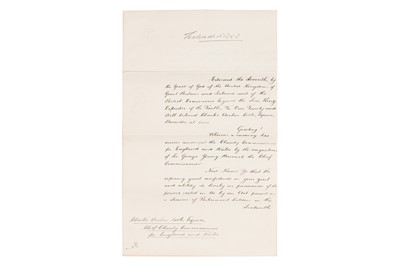 Edward the Seventh, by
the Grace of God of the United Kingdom of
Great Britain and Ireland and of the
British Dominions beyond the Seas King
Defender of the Faith, To Our Trusty and
Well beloved Charles Esquire
Barrister at Law
Greeting!
Whereas a vacancy has
arisen amongst the Charity Commissioners
for England and Wales by the resignation
of Sir George Young Baronet the Chief
Commissioner
Now Know Ye that We
reposing great confidence in your zeal
and ability do hereby in pursuance of the
powers vested in Us by an Act passed in
a Session of Parliament holden in the
Sixteenth
Charles Esquire
Chief Charity Commissioner
for England and Wales